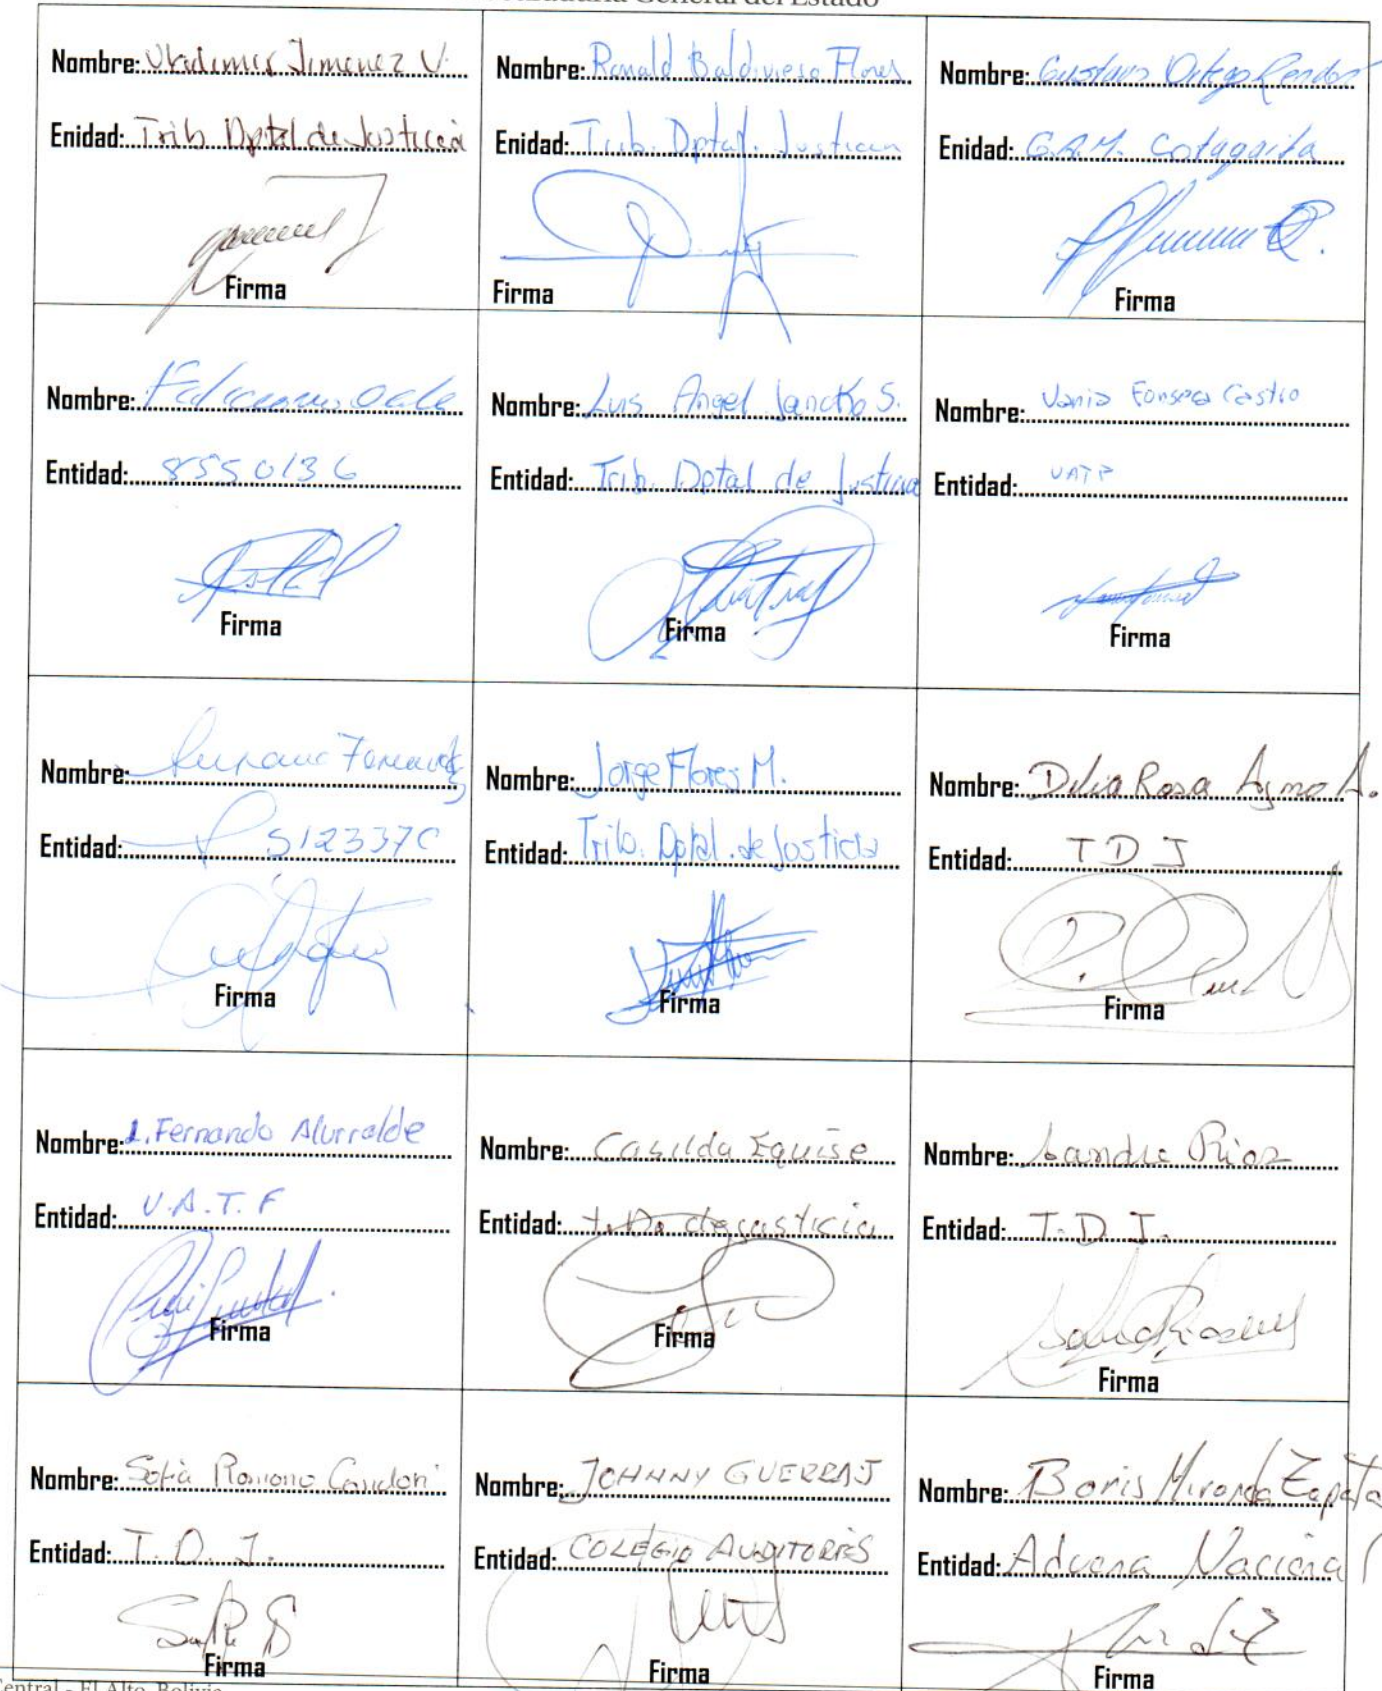 General del Estado
Nombre: Vladimir Jimenez V.
Enidad: Trib Dptal de Justicia
Firma
Nombre: Ronald Baldivieso Flores
Enidad: Trib. Dptal. Justicia
Firma
Nombre: Gustavo Ortega Rendon
Enidad: G.A.M. Cotagaita
Firma
Nombre:
Entidad: 8550136
Firma
Nombre: Luis Angel Jancko S.
Entidad: Trib. Dptal de Justicia
Firma
Nombre: Vania Fonseca Castro
Entidad: UATF
Firma
Nombre:
Entidad: 512337C
Firma
Nombre: Jorge Flores M.
Entidad: Trib. Dptal. de Justicia
Firma
Nombre: Delia Rosa Aymo A.
Entidad: T D J
Firma
Nombre: L. Fernando Alurralde
Entidad: U.A.T.F
Firma
Nombre: Casilda Equise
Entidad: t. Dp. de justicia
Firma
Nombre: Sandra Rios
Entidad: T. D. J.
Firma
Nombre: Sofia Romano Condori
Entidad: T. D. J.
Firma
Nombre: JOHNNY GUERRA J
Entidad: COLEGIO AUDITORES
Firma
Nombre: Boris Miranda Zapata
Entidad: Aduana Nacional
Firma
Central - El Alto, Bolivia